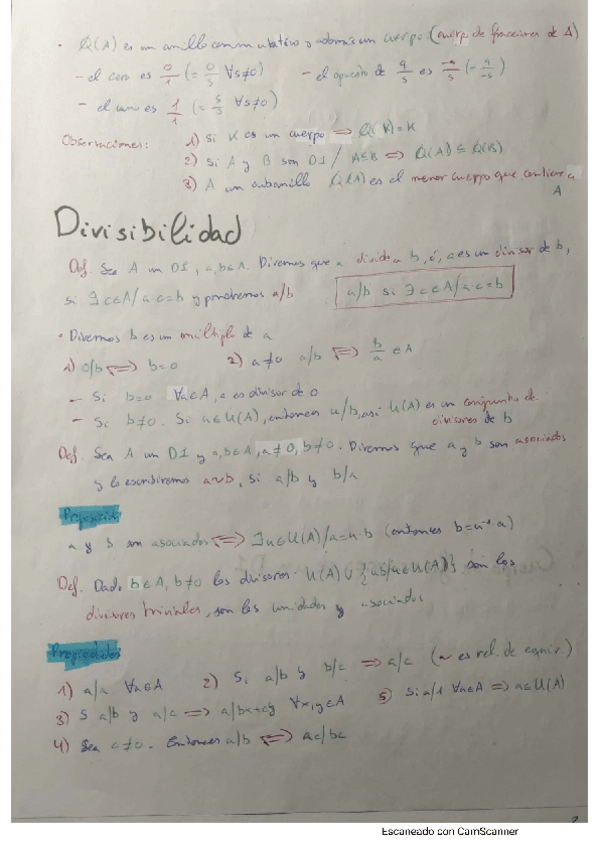 · Q(A) es un anillo conmutativo y además un cuerpo (cuerpo de fracciones de A)
- el cero es 0/1 (= 0/s ∀s≠0) - el opuesto de a/s es -a/s (= a/-s)
- el uno es 1/1 (= s/s ∀s≠0)
Observaciones: 1) Si K es un cuerpo ⟹ Q(K)=K
2) Si A y B son DI / A⊆B ⟹ Q(A) ⊆ Q(B)
3) A un subanillo Q(A) es el menor cuerpo que contiene a A
Divisibilidad
Def. Sea A un DI, a,b∈A. Diremos que a divide a b, ó, a es un divisor de b,
si ∃c∈A/a·c=b y pondremos a/b a/b si ∃c∈A/a·c=b
· Diremos b es un múltiplo de a
1) 0/b ⟺ b=0 2) a≠0 a/b ⟺ b/a ∈A
- Si b=0 ∀a∈A, a es divisor de 0
- Si b≠0. Si u∈U(A), entonces u/b, así U(A) es un conjunto de
divisores de b
Def. Sea A un DI y a,b∈A, a≠0, b≠0. Diremos que a y b son asociados
y lo escribiremos a~b, si a/b y b/a
Proposición
a y b son asociados ⟺ ∃u∈U(A)/a=u·b (entonces b=u⁻¹a)
Def. Dado b∈A, b≠0 los divisores U(A) ∪ {ub/u∈U(A)} son los
divisores triviales, son las unidades y asociados
Propiedades
1) a/a ∀a∈A 2) Si a/b y b/c ⟹ a/c (~ es rel. de equiv.)
3) S a/b y a/c ⟹ a/bx+cy ∀x,y∈A 5) Si a/1 ∀a∈A ⟹ a∈U(A)
4) Sea c≠0. Entonces a/b ⟺ ac/bc
2
Escaneado con CamScanner